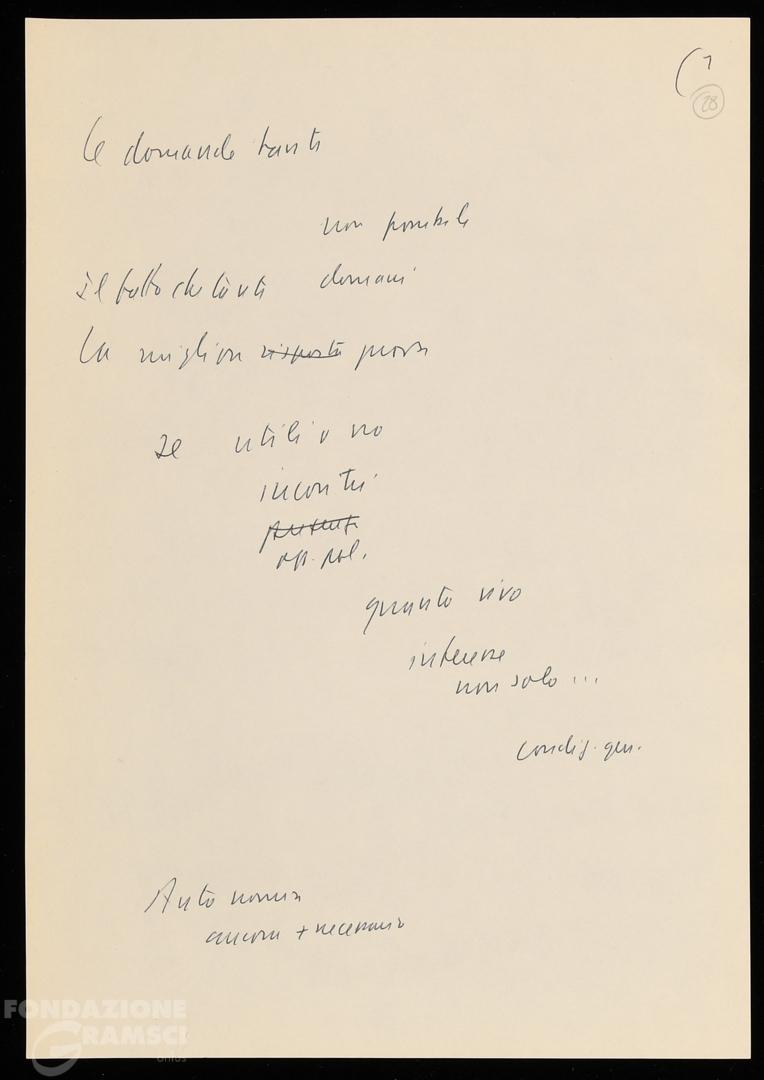 ( 7
28
Le domande tante
non possibile
Il fatto che tanti domani
La miglior risposta prova
Se utili o no
incontri
opp. pol.
quanto vivo
interesse
non solo ...
condiz. gen.
Autonomia
ancora + necessaria
FONDAZIONE
GRAMSCI
onlus